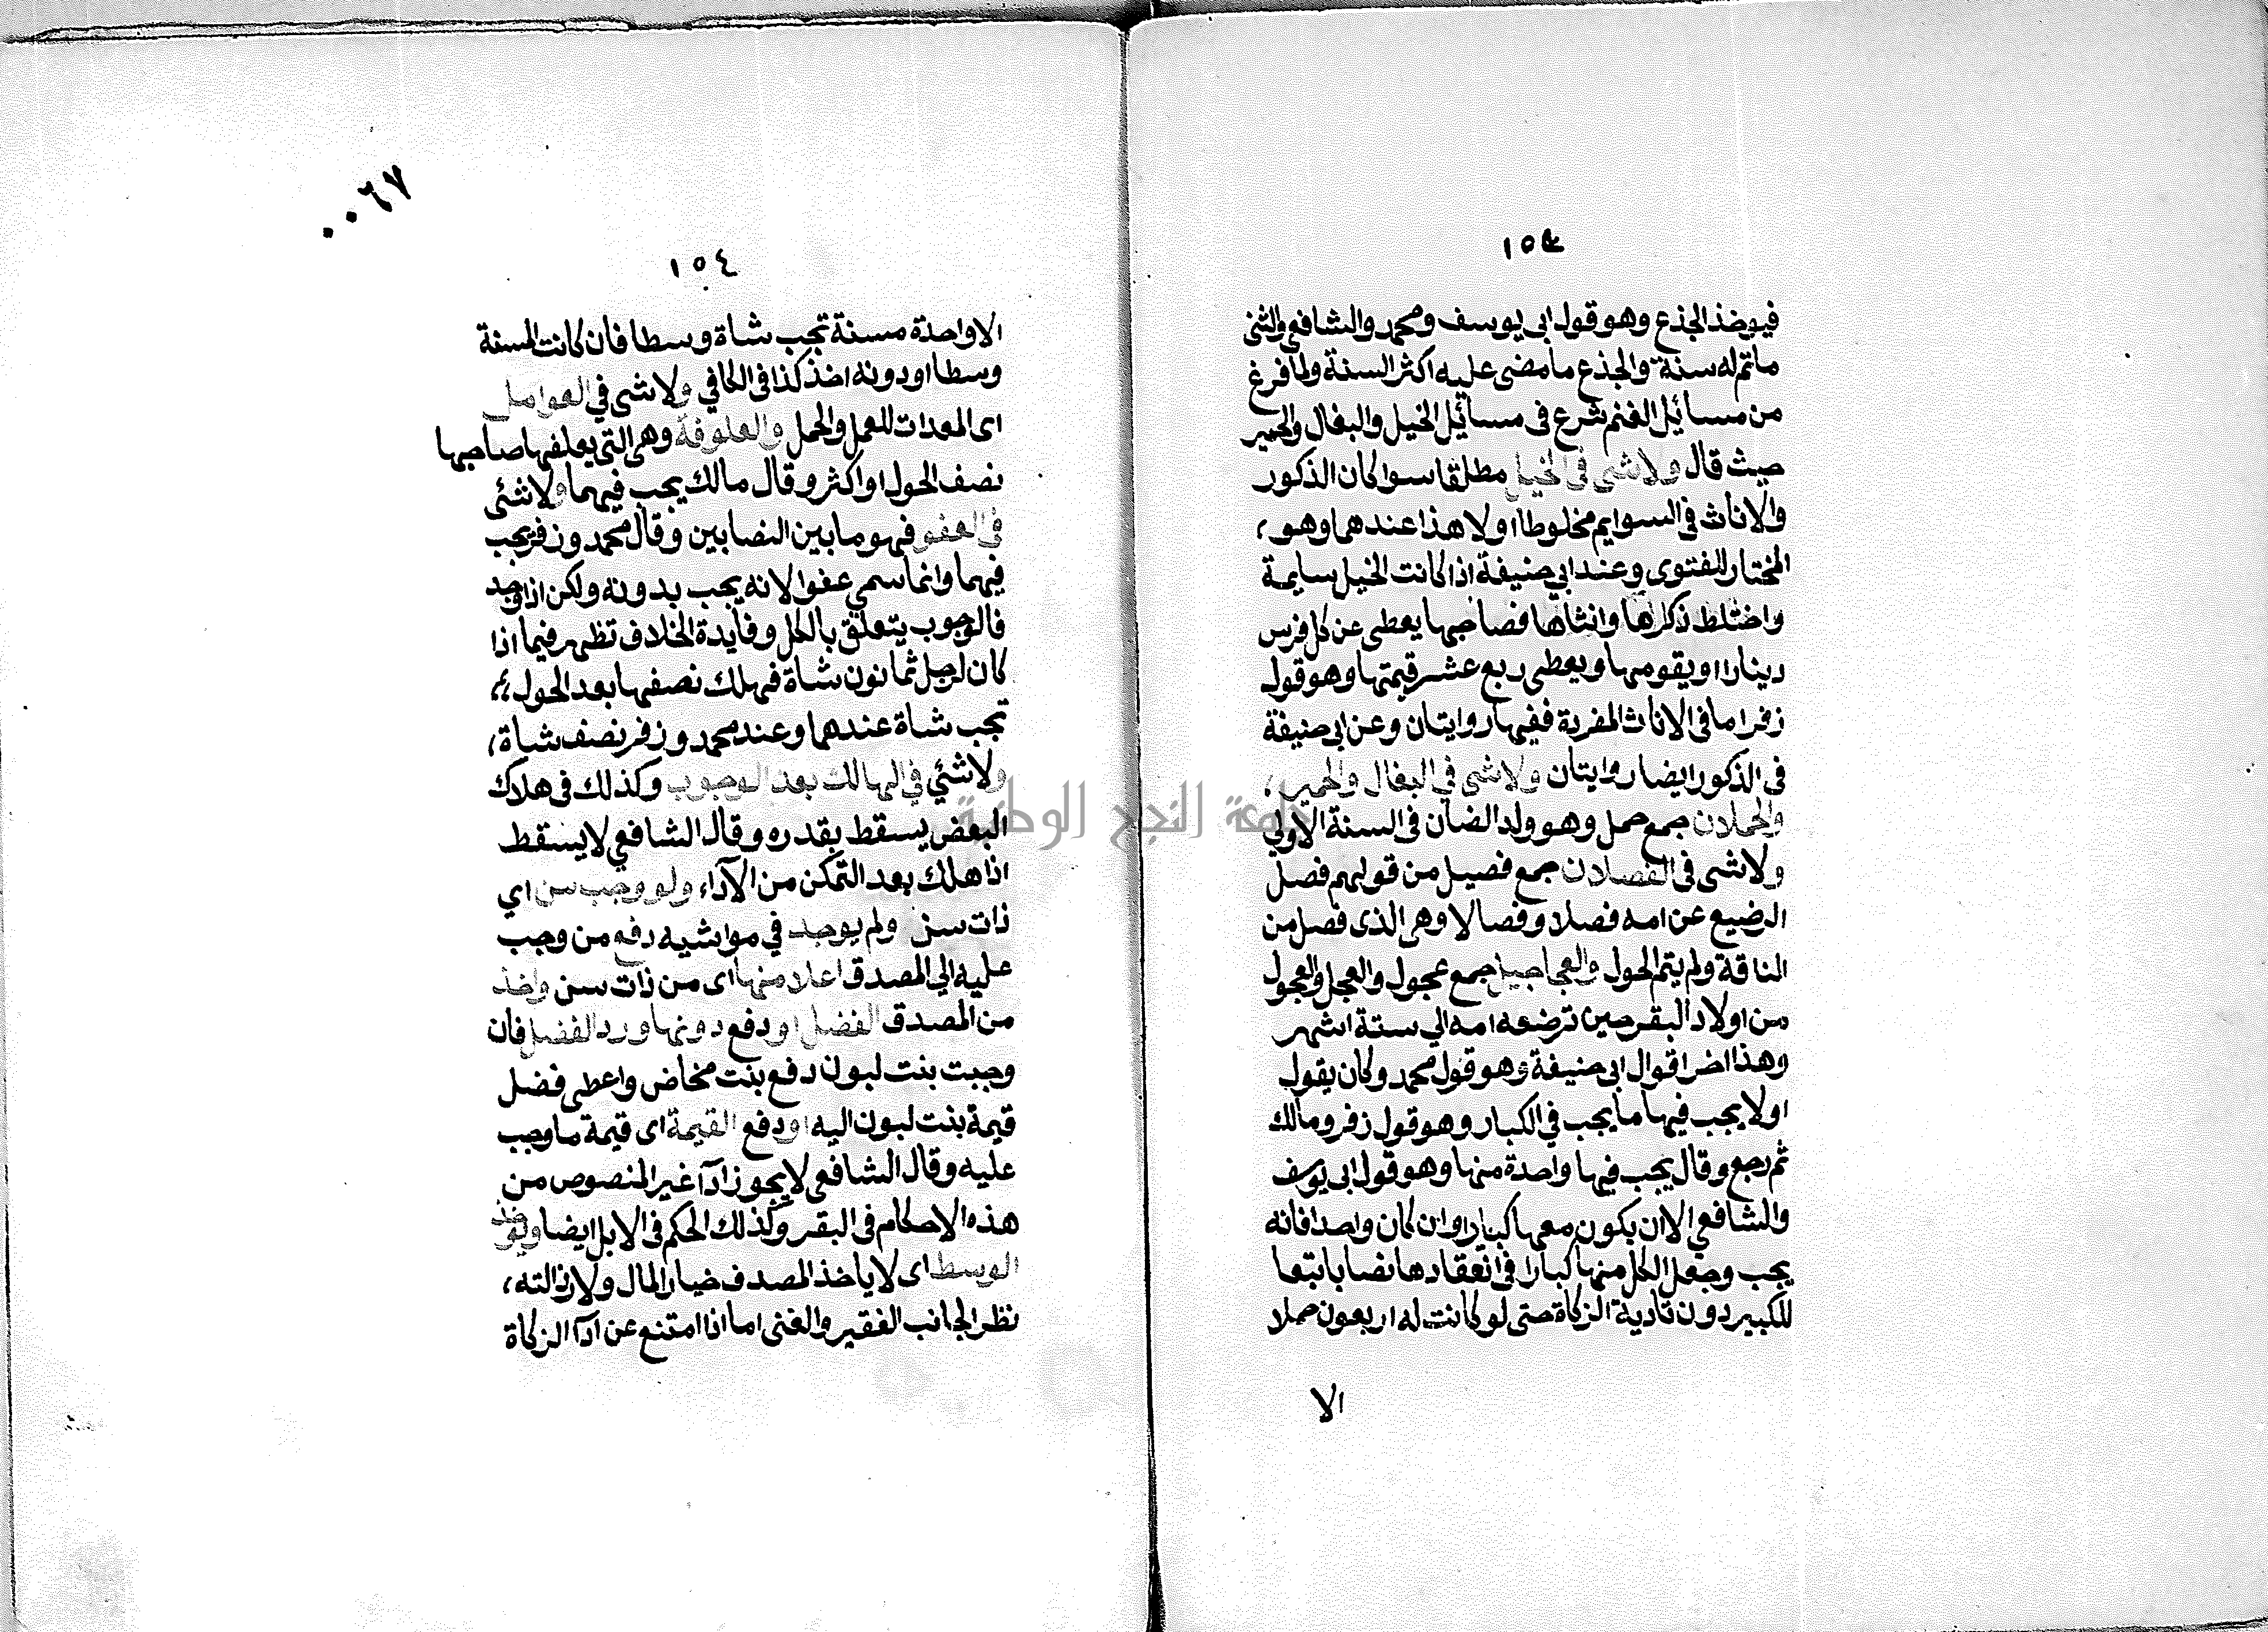 ١٥٤
فيوخذ الجذع وهو قول ابى يوسف ومحمد والشافعى والثنى
ماتم له سنة والجذع ما مضى عليه اكثر السنة ولما فرغ
من مسائل الغنم شرع فى مسائل الخيل والبغال والحمير
حيث قال ولاشى فى الخيل مطلقا سوا كان الذكور
والاناث فى السوايم مخلوطا اولا هذا عندهما وهو،
المختار للفتوى وعند ابى حنيفة اذا كانت الخيل سايمة
واختلط ذكرها وانثاها فصاحبها يعطى عن كل فرس
دينارا او يقومها ويعطى ربع عشر قيمتها وهو قول
زفر اما فى الاناث المفردة ففيها روايتان وعن ابى حنيفة
فى الذكور ايضا روايتان ولاشى في البغال والحمير،
والحملان جمع حمل وهو ولد الضان فى السنة الاولي
ولاشى فى الفصلان جمع فصيل من قولهم فصل
الرضيع عن امه فصلا وفصالا وهى الذى فصل من
الناقة ولم يتم الحول والعجاجيل جمع عجول والعجل والعجول
من اولاد البقر حين ترضعه امه الي ستة اشهر
وهذا اخر اقوال ابى حنيفة وهو قول محمد وكان يقول
اولا يجب فيها ما يجب في الكبار وهو قول زفر ومالك
ثم رجع وقال يجب فيها واحدة منها وهو قول ابى يوسف
والشافعي الا ان يكون معها كبارا وان كان واحدا فانه
يجب وجعل الكل منها كبارا فى انعقادها نصابا تبعا
للكبير دون تادية الزكاة حتى لو كانت له اربعون حملا
الا
٠٠٦٧
١٥٤
الا واحدة مسنة تجب شاة وسطا فان كانت المسنة
وسطا او دونه اخذ كذا فى الكافي ولاشى في العوامل
اى المعدات للعمل والحمل والعلوفة وهى التى يعلفها صاحبها
نصف الحول او اكثر وقال مالك يجب فيهما ولا شئى
فى العفو فهو ما بين النصابين وقال محمد وزفر يجب
فيهما وانما سمي عفوا لانه يجب بدونه ولكن اذا وجد
فالوجوب يتعلق بالكل وفايدة الخلاف تظهر فيما اذا
كان لرجل ثمانون شاة فهلك نصفها بعد الحول،
تجب شاة عندهما وعند محمد وزفر نصف شاة،
ولاشئي في الهالك بعد الوجوب وكذلك فى هلاك
البعض يسقط بقدره وقال الشافعي لا يسقط
اذا هلك بعد التمكن من الآداء ولو وجب سن اي
ذات سن ولم يوجد في مواشيه دفع من وجب
عليه الي المصدق اعلا منها اى من ذات سن واخذ
من المصدق الفضل او دفع دونها ورد الفضل فان
وجبت بنت لبون دفع بنت مخاض واعطى فضل
قيمة بنت لبون اليه او دفع القيمة اى قيمة ما وجب
عليه وقال الشافعى لا يجوز ادآ غير المنصوص من
هذه الاحكام فى البقر وكذلك الحكم فى الابل ايضا ويوخذ
الوسط اى لا ياخذ المصدف خيار المال ولا رذالته،
نظر الجانب الفقير والغنى اما اذا امتنع عن ادآ الزكاة
جامعة النجاح الوطنية